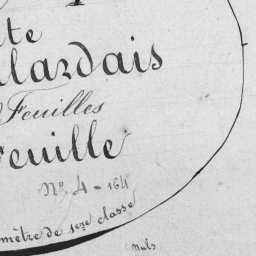 te
lardais
Feuilles
Feuille
N.º 4 = 164
mètre de 1ere classe
nuls